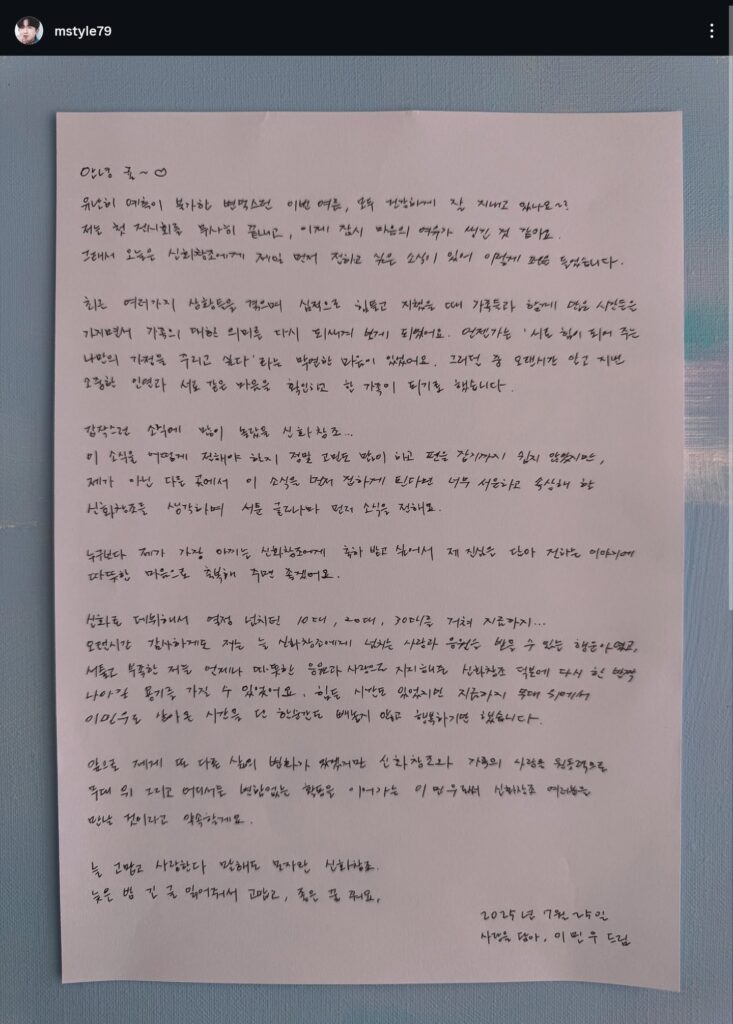 mstyle79
안녕 귤~♡
유난히 예측이 불가한 변덕스런 이번 여름, 모두 건강하게 잘 지내고 있나요~?
저는 첫 전시회를 무사히 끝내고, 이제 잠시 마음의 여유가 생긴 것 같아요.
그래서 오늘은 신화창조에게 제일 먼저 전하고 싶은 소식이 있어 이렇게 펜을 들었습니다.
최근 여러가지 상황들을 겪으며 심적으로 힘들고 지쳤을 때 가족들과 함께 많은 시간들을
가지면서 가족의 대한 의미를 다시 되새기 번게 되었어요. 언젠가는 '서로 힘이 되어 주는
나만의 가정을 꾸리고 싶다'라는 막연한 마음이 있었어요. 그러던 중 오랜시간 알고 지낸
소중한 인연과 서로 같은 마음을 확인하고 한 가족이 되기로 했습니다.
갑작스런 소식에 많이 놀랐을 신화창조...
이 소식을 어떻게 전해야 할지 정말 고민도 많이 하고 펜을 잡기까지 쉽지 않았지만,
제가 아닌 다른 곳에서 이 소식을 먼저 접하게 된다면 너무 서운하고 속상해 할
신화창조를 생각하며 서툰 글로나마 먼저 소식을 전해요.
누구보다 제가 가장 아끼는 신화창조에게 축하 받고 싶어서 제 진심을 담아 전하는 이야기에
따뜻한 마음으로 축복해 주면 좋겠어요.
신화로 데뷔해서 열정 넘치던 10대, 20대, 30대를 거쳐 지금까지...
오랜시간 감사하게도 저는 늘 신화창조에게 넘치는 사랑과 응원을 받을 수 있는 행운아였고,
서툴고 부족한 저를 언제나 따뜻한 응원과 사랑으로 지지해준 신화창조 덕분에 다시 한 발짝
나아갈 용기를 가질 수 있었어요. 힘든 시간도 있었지만 지금까지 무대 위에서
이민우로 살아온 시간을 단 한순간도 빼놓지 않고 행복하기만 했습니다.
앞으로 제게 또 다른 삶의 변화가 있겠지만 신화창조와 가족의 사랑을 원동력으로
무대 위 그리고 어디서든 변함없는 활동을 이어가는 이민우로써 신화창조 여러분을
만날 것이라고 약속할게요.
늘 고맙고 사랑한다 말해도 모자란 신화창조.
늦은 밤 긴 글 읽어줘서 고맙고, 좋은 꿈 꿔요,
2025년 7월 25일
사랑을 담아, 이민우 드림